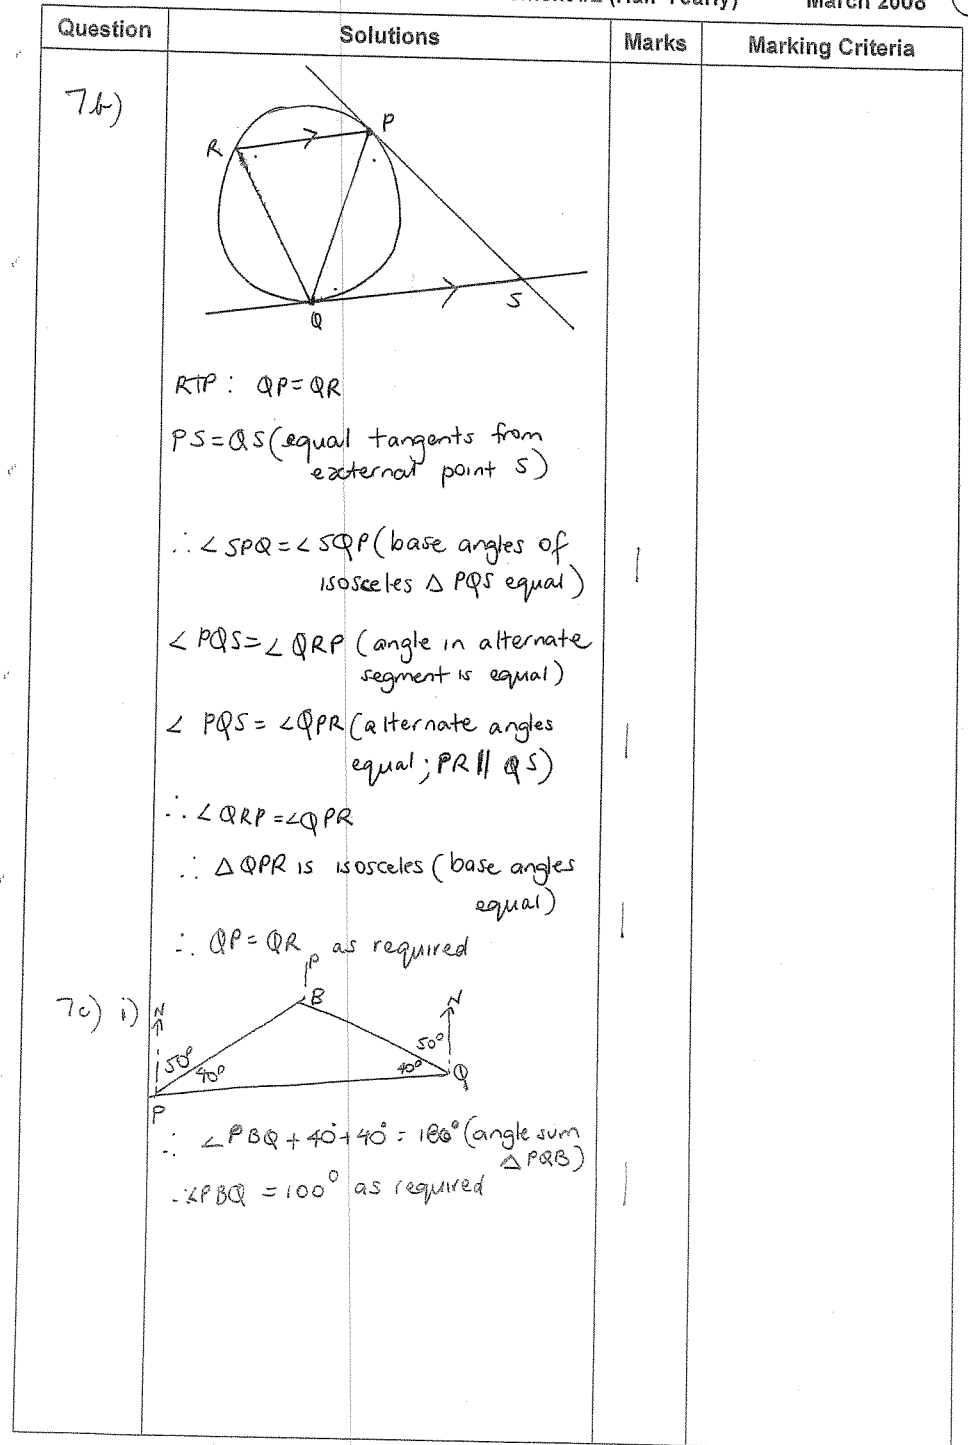 (Half Yearly) March 2008
Question Solutions Marks Marking Criteria
7b)
R P
Q S
RTP: QP=QR
PS=QS (equal tangents from
external point S)
∴ ∠SPQ=∠SQP (base angles of
isosceles Δ PQS equal) 1
∠PQS=∠QRP (angle in alternate
segment is equal)
∠PQS=∠QPR (alternate angles 1
equal; PR || QS)
∴ ∠QRP=∠QPR
∴ ΔQPR is isosceles (base angles
equal) 1
∴ QP=QR as required
7c) i) N P B N
50° 40° 40° 50° Q
P
∴ ∠PBQ+40°+40°=180° (angle sum
Δ PQB)
∴ ∠PBQ = 100° as required 1